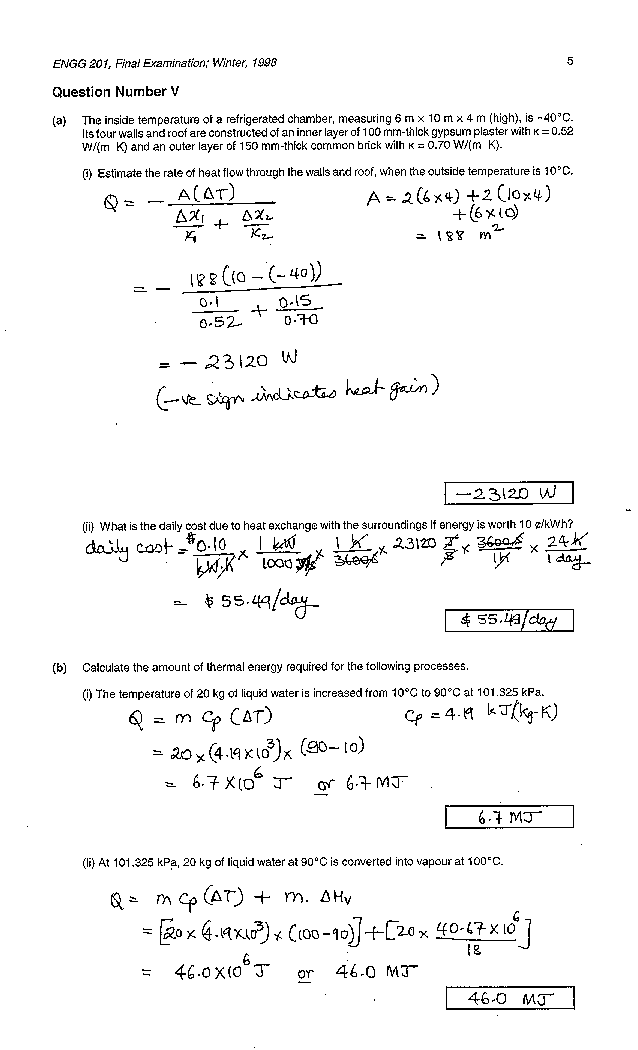 ENGG 201, Final Examination; Winter, 1998 5
Question Number V
(a) The inside temperature of a refrigerated chamber, measuring 6 m × 10 m × 4 m (high), is -40°C.
Its four walls and roof are constructed of an inner layer of 100 mm-thick gypsum plaster with κ = 0.52
W/(m K) and an outer layer of 150 mm-thick common brick with κ = 0.70 W/(m K).
(i) Estimate the rate of heat flow through the walls and roof, when the outside temperature is 10°C.
Q = - A(ΔT) / (Δx₁/K₁ + Δx₂/K₂)
A = 2(6×4) + 2(10×4)
+ (6×10)
= 188 m²
= - 188((10-(-40)) / (0.1/0.52 + 0.15/0.70)
= - 23120 W
(-ve sign indicates heat gain)
-23120 W
(ii) What is the daily cost due to heat exchange with the surroundings if energy is worth 10 ¢/kWh?
daily cost = $0.10/kW.K × 1 kW/1000 J/s × 1 K/3600s × 23120 J/s × 3600s/1K × 24K/1 day
= $ 55.49/day
$ 55.49/day
(b) Calculate the amount of thermal energy required for the following processes.
(i) The temperature of 20 kg of liquid water is increased from 10°C to 90°C at 101.325 kPa.
Q = m Cp (ΔT) Cp = 4.19 kJ/(kg-K)
= 20 × (4.19×10³) × (90-10)
= 6.7 × 10⁶ J or 6.7 MJ
6.7 MJ
(ii) At 101.325 kPa, 20 kg of liquid water at 90°C is converted into vapour at 100°C.
Q = m Cp (ΔT) + m. ΔHv
= [20 × (4.19×10³) × (100-90)] + [20 × 40.67×10⁶/18]
= 46.0×10⁶ J or 46.0 MJ
46.0 MJ